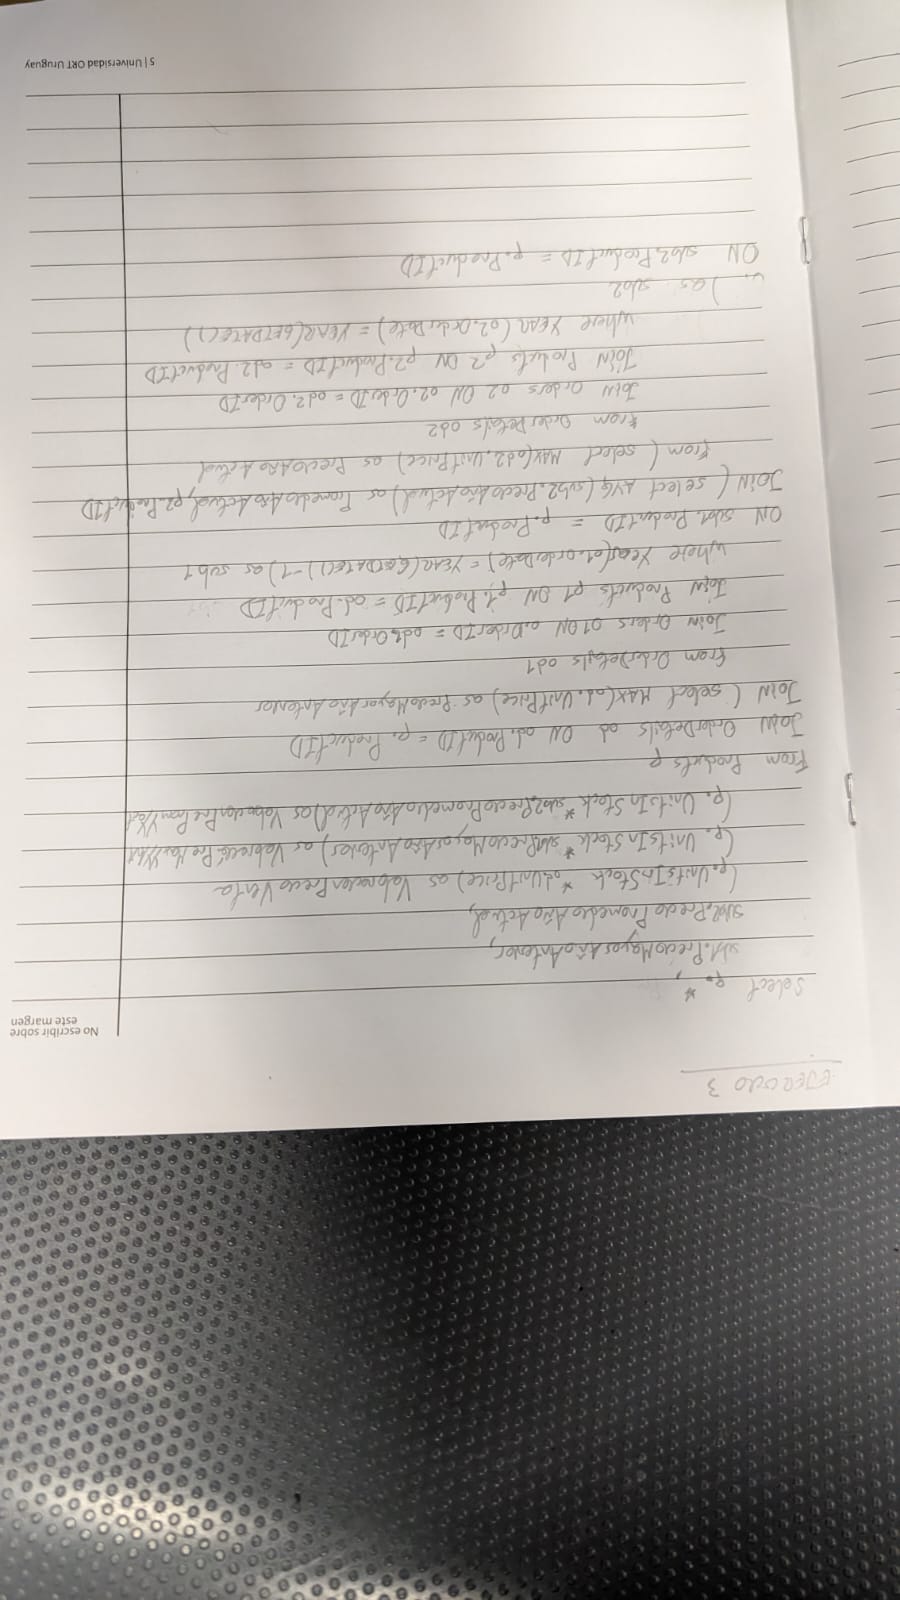 EJERCICIO 3
No escribir sobre
este margen
Select p.*,
sub1.PrecioMayorAñoAnterior,
sub2.PrecioPromedioAñoActual,
(p.UnitsInStock * od.UnitPrice) as ValoracionPrecioVenta
(p. UnitsInStock * sub1.PrecioMayorAñoAnterior) as
(p. UnitsInStock * sub2.PrecioPromedioAñoActual) as
From Products p
JOIN OrderDetails od ON od.ProductID = p. ProductID
JOIN ( select MAX(od.UnitPrice) as PrecioMayorAñoAnterior
from OrderDetails od1
Join Orders o1 ON o.OrderID = od1.OrderID
Join Products p1 ON p1.ProductID = od.ProductID
where Year(o1.orderDate) = YEAR(GETDATE()) -1) as sub1
ON sub1.ProductID = p.ProductID
JOIN ( select AVG (sub2.PrecioAñoActual) as PromedioAñoActual, p2.ProductID
from ( select MAX(od2.UnitPrice) as PrecioAñoActual
from OrderDetails od2
JOIN Orders o2 ON o2.OrderID = od2.OrderID
JOIN Products p2 ON p2.ProductID = od2.ProductID
where YEAR (o2.OrderDate) = YEAR(GETDATE())
) as sub2
ON sub2.ProductID = p.ProductID
5 | Universidad ORT Uruguay